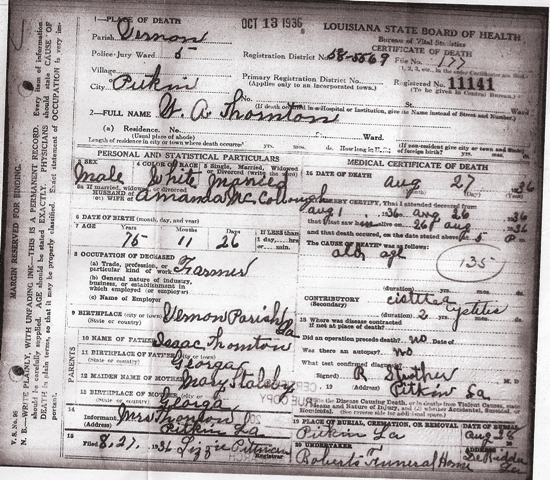 OCT 13 1936
LOUISIANA STATE BOARD OF HEALTH
Bureau of Vital Statistics
CERTIFICATE OF DEATH
1—PLACE OF DEATH
Parish Vernon
Police Jury Ward 5
Registration District No. 58-5569
File No. 177
Village
City Pitkin
Primary Registration District No.
(Applies only to an incorporated town.)
Registered No. 11141
(To be given in Central Bureau.)
2—FULL NAME W. A. Thornton
(If death occurred in a Hospital or Institution, give its Name instead of Street and Number.)
(a) Residence. No. Ward.
(Usual place of abode)
(If non-resident give city or town and State)
Length of residence in city or town where death occurred yrs. mos. How long in U. S. if of foreign birth?
PERSONAL AND STATISTICAL PARTICULARS
3 SEX
Male
4 COLOR OR RACE
White
5 Single, Married, Widowed or Divorced (write the word)
Married
5a If married, widowed, or divorced
HUSBAND of
(or) WIFE of
Amanda McCollough
6 DATE OF BIRTH (month, day, and year)
7 AGE
Years
75
Months
11
Days
26
If LESS than
1 day, hrs.
or min.
8 OCCUPATION OF DECEASED
(a) Trade, profession, or particular kind of work
Farmer
(b) General nature of industry, business, or establishment in which employed (or employer)
(c) Name of Employer
9 BIRTHPLACE (city or town)
(State or country)
Vernon Parish La
PARENTS
10 NAME OF FATHER
Isaac Thornton
11 BIRTHPLACE OF FATHER (city or town)
(State or country)
Georga
12 MAIDEN NAME OF MOTHER
Mary Stalsby
Georga
14
Informant Mrs Thornton
Pitkin La
15
Filed 8.27. 1936 Lizzie Pittman
Registrar
MEDICAL CERTIFICATE OF DEATH
16 DATE OF DEATH
Aug 27 1936
I HEREBY CERTIFY, That I attended deceased from
Aug 1 1936 Aug 26 1936
that I last saw him alive on 26 Aug 1936
and that death occurred, on the date stated above, 5 P
The CAUSE OF DEATH was as follows:
old age
135
(duration)
CONTRIBUTORY
(Secondary)
Cystitis
(duration) 2
18 Where was disease contracted
if not at place of death?
Did an operation precede death? no
Was there an autopsy? no
What test confirmed diagnosis?
Signed R M. D
19 (Address) Pitkin La.
19 PLACE OF BURIAL, CREMATION, OR REMOVAL
Pitkin La
DATE OF BURIAL
Aug 28
20 UNDERTAKER
Roberts Funeral Home
De Ridder La
MARGIN RESERVED FOR BINDING.
N. B.—WRITE PLAINLY, WITH UNFADING INK—THIS IS A PERMANENT RECORD. Every item of information
should be carefully supplied. AGE should be stated EXACTLY. PHYSICIANS should state CAUSE OF
DEATH in plain terms, so that it may be properly classified. Exact statement of OCCUPATION is very im-
portant.